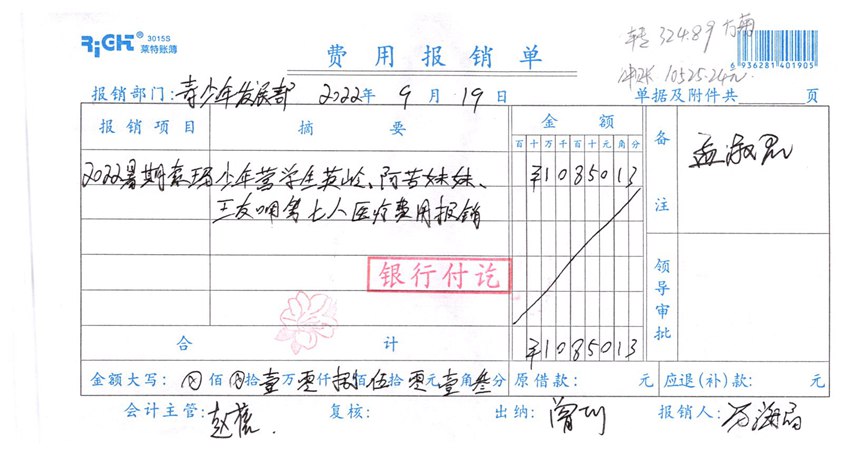 RiGHT® 3015S
莱特账簿
费用报销单
转 324.89 万菊
冲账 10525.24元
6 936281 401905
报销部门:青少年发展部 2022年 9月 19日 单据及附件共 页
报销项目 摘要 金额 备注
百十万千百十元角分
2022暑期索玛少年营学生英岭、阿苦妹妹、 ¥1085013
王友呷等七人医疗费用报销
银行付讫
领导审批
合计 ¥1085013
金额大写: ⊗佰⊗拾壹万零仟捌佰伍拾零元壹角叁分 原借款: 元 应退(补)款: 元
会计主管: 赵 复核: 出纳: 曾 报销人: 万海